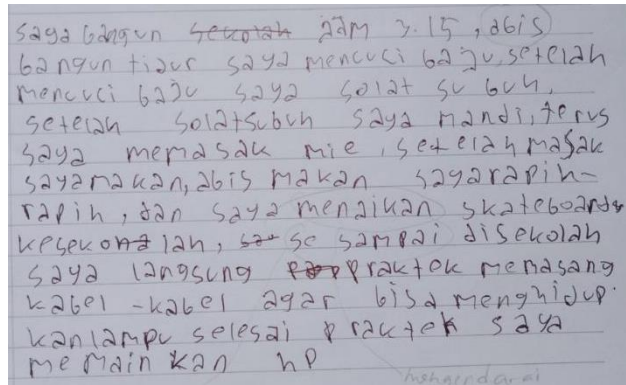 saya bangun jam 3.15, abis
bangun tidur saya mencuci baju, setelah
mencuci baju saya solat subuh,
setelah solat subuh saya mandi, terus
saya memasak mie, setelah masak
saya makan, abis makan saya rapih-
rapih, dan saya menaikan skateboard
kesekolah, se sampai disekolah
saya langsung praktek memasang
kabel-kabel agar bisa menghidup-
kan lampu selesai praktek saya
memainkan hp
menghindarai